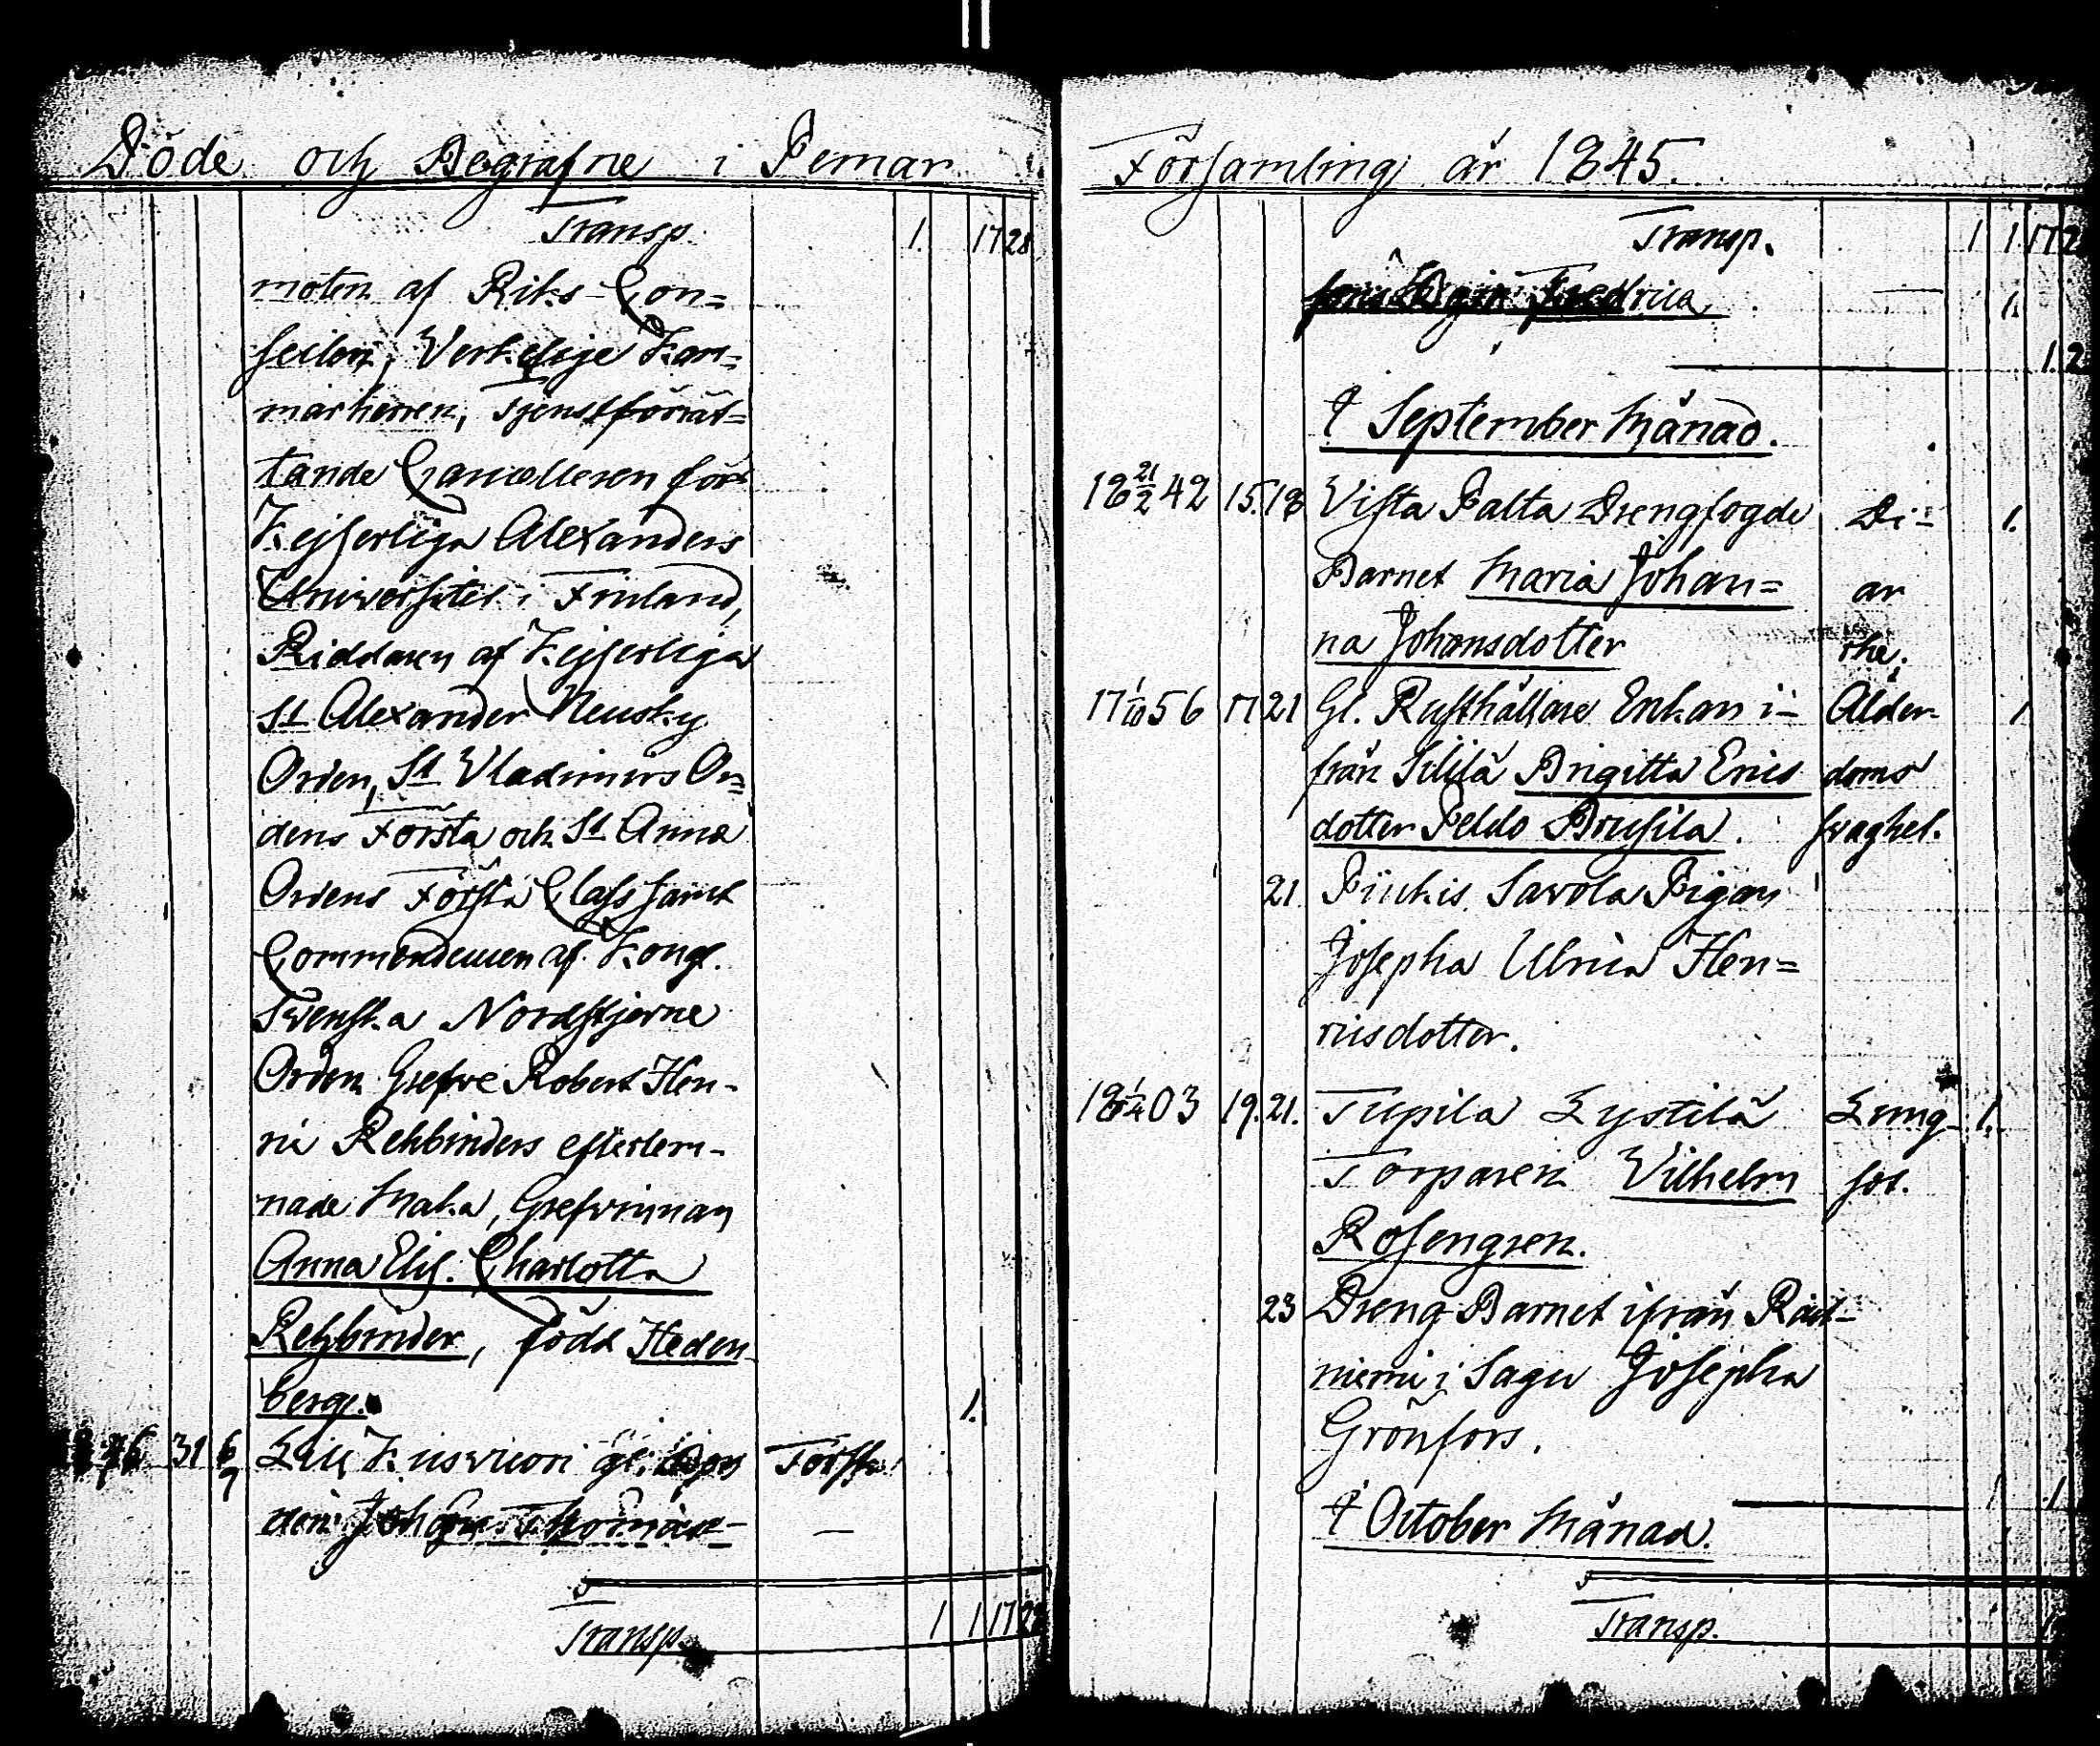 Döde och Begrafne i Pemar
Transp. 1. 17 28
moten af Riks-Con=
seilen, Verkelige Kam=
marherren, Tjenstförrät=
tande Cancelleren för
Kejserliga Alexanders
Universitet i Finland,
Riddaren af Kejserliga
St Alexander Neusky
Orden, St Vladimirs Or=
dens Första och St Anna
Ordens Första Class samt
Commendeuren af Kongl.
Svenska Nordstjerne
Orden Grefve Robert Hen-
ric Rehbinders efterlem-
nade Maka, Grefvinnan
Anna Elis. Charlotta
Rehbinder, född Heden
berg. 1.
76 31 6 Kusvuori gl.
7 Johan
Transp. 1 1 17 28
Församling år 1845.
Transp. 1 1. 17 2
Fredrica 1.
1. 2
I September Månad.
18 21/2 42 15. 18 Vista Palta Drengfogde Di- 1.
Barnet Maria Johan= ar
na Johansdotter rhé.
17 1/10 56 17 21 Gl. Rusthållare Enkan i- Ålder- 1
från Sililä Brigitta Erics doms
dotter Peldo Brusila. svaghet.
21. Piikis Savola Pigan
Josepha Ulrica Hen=
ricsdotter.
18 1/4 03 19. 21. Tupila Kystilä Lung- 1.
Torparen Vilhelm sot.
Rosengren.
23 Dreng Barnet ifrån
niemi i Sagu Josepha
Grönfors.
1 1
I October Månad.
Transp. 1